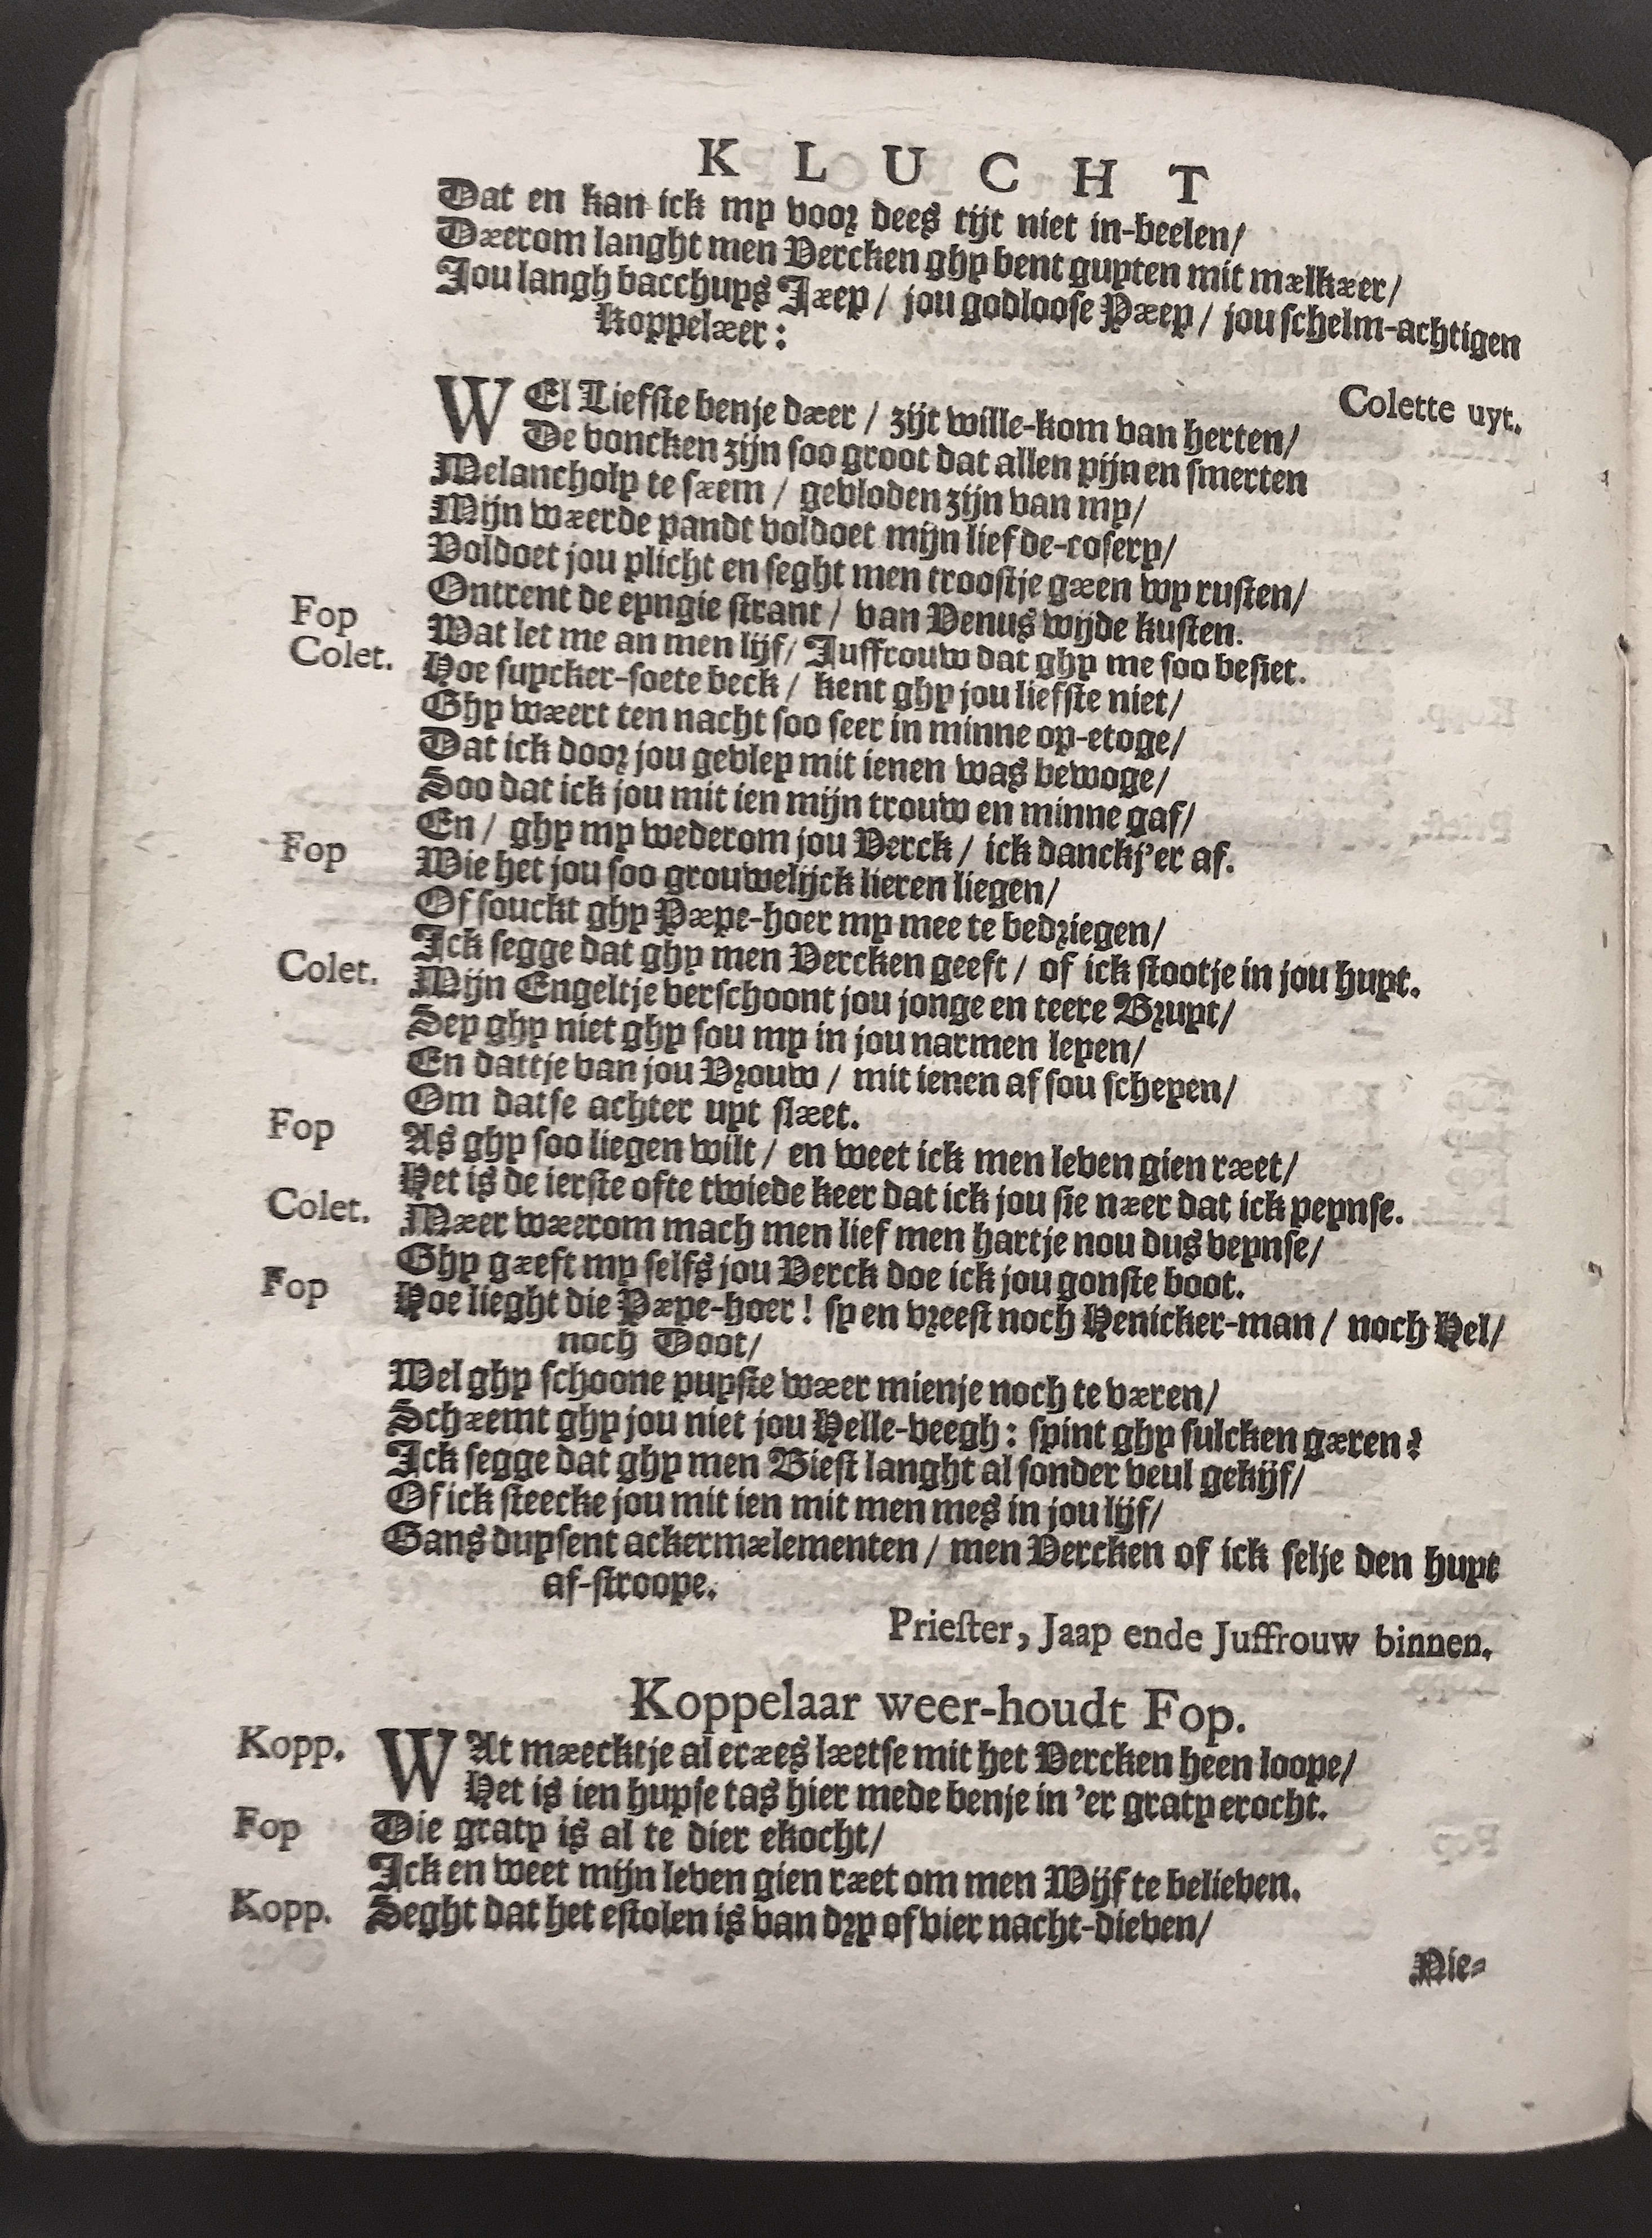 K L U C H T
Dat en kan ick my voor dees tijt niet in-beelen/
Dærom langht men Vercken ghy bent guyten mit mælkær/
Jou langh bacchuys Jæp/ jou godloose Pæp/ jou schelm-achtigen
Koppelær:
Colette uyt.
WEl Liefste benje dær/ zijt wille-kom van herten/
De voncken zijn soo groot dat allen pijn en smerten
Melancholy te sæm/ gevloden zijn van my/
Mijn wærde pandt voldoet mijn liefde-rosery/
Voldoet jou plicht en seght men troostje gæn wy rusten/
Ontrent de eyngie strant/ van Venus wijde kusten.
Fop Wat let me an men lijf/ Juffrouw dat ghy me soo besiet.
Colet. Hoe suycker-soete beck/ kent ghy jou liefste niet/
Ghy wært ten nacht soo seer in minne op-etoge/
Dat ick door jou gevley mit ienen was bewoge/
Soo dat ick jou mit ien mijn trouw en minne gaf/
En/ ghy my wederom jou Verck/ ick danckj'er af.
Fop Wie het jou soo grouwelijck lieren liegen/
Of souckt ghy Pæpe-hoer my mee te bedriegen/
Ick segge dat ghy men Vercken geeft/ of ick stootje in jou huyt.
Colet. Mijn Engeltje verschoont jou jonge en teere Bruyt/
Sey ghy niet ghy sou my in jou narmen leyen/
En dattje van jou Vrouw/ mit ienen af sou scheyen/
Om datse achter uyt slæt.
Fop As ghy soo liegen wilt/ en weet ick men leven gien ræt/
Het is de ierste ofte twiede keer dat ick jou sie nær dat ick peynse.
Colet. Mær wærom mach men lief men hartje nou dus veynse/
Ghy gæft my selfs jou Verck doe ick jou gonste boot.
Fop Hoe lieght die Pæpe-hoer! sy en vreest noch Henicker-man/ noch Hel/
noch Doot/
Wel ghy schoone puyste wær mienje noch te væren/
Schæmt ghy jou niet jou Helle-veegh: spint ghy sulcken gæren?
Ick segge dat ghy men Biest langht al sonder veul gekijf/
Of ick steecke jou mit ien mit men mes in jou lijf/
Gans duysent ackermælementen/ men Vercken of ick selje den huyt
af-stroope.
Priester, Jaap ende Juffrouw binnen.
Koppelaar weer-houdt Fop.
Kopp. WAt mæcktje al eræs lætse mit het Vercken heen loope/
Het is ien huyse tas hier mede benje in 'er graty erocht.
Fop Die graty is al te dier ekocht/
Ick en weet mijn leven gien ræt om men Wijf te believen.
Kopp. Seght dat het estolen is van dry of vier nacht-dieven/
Nie-